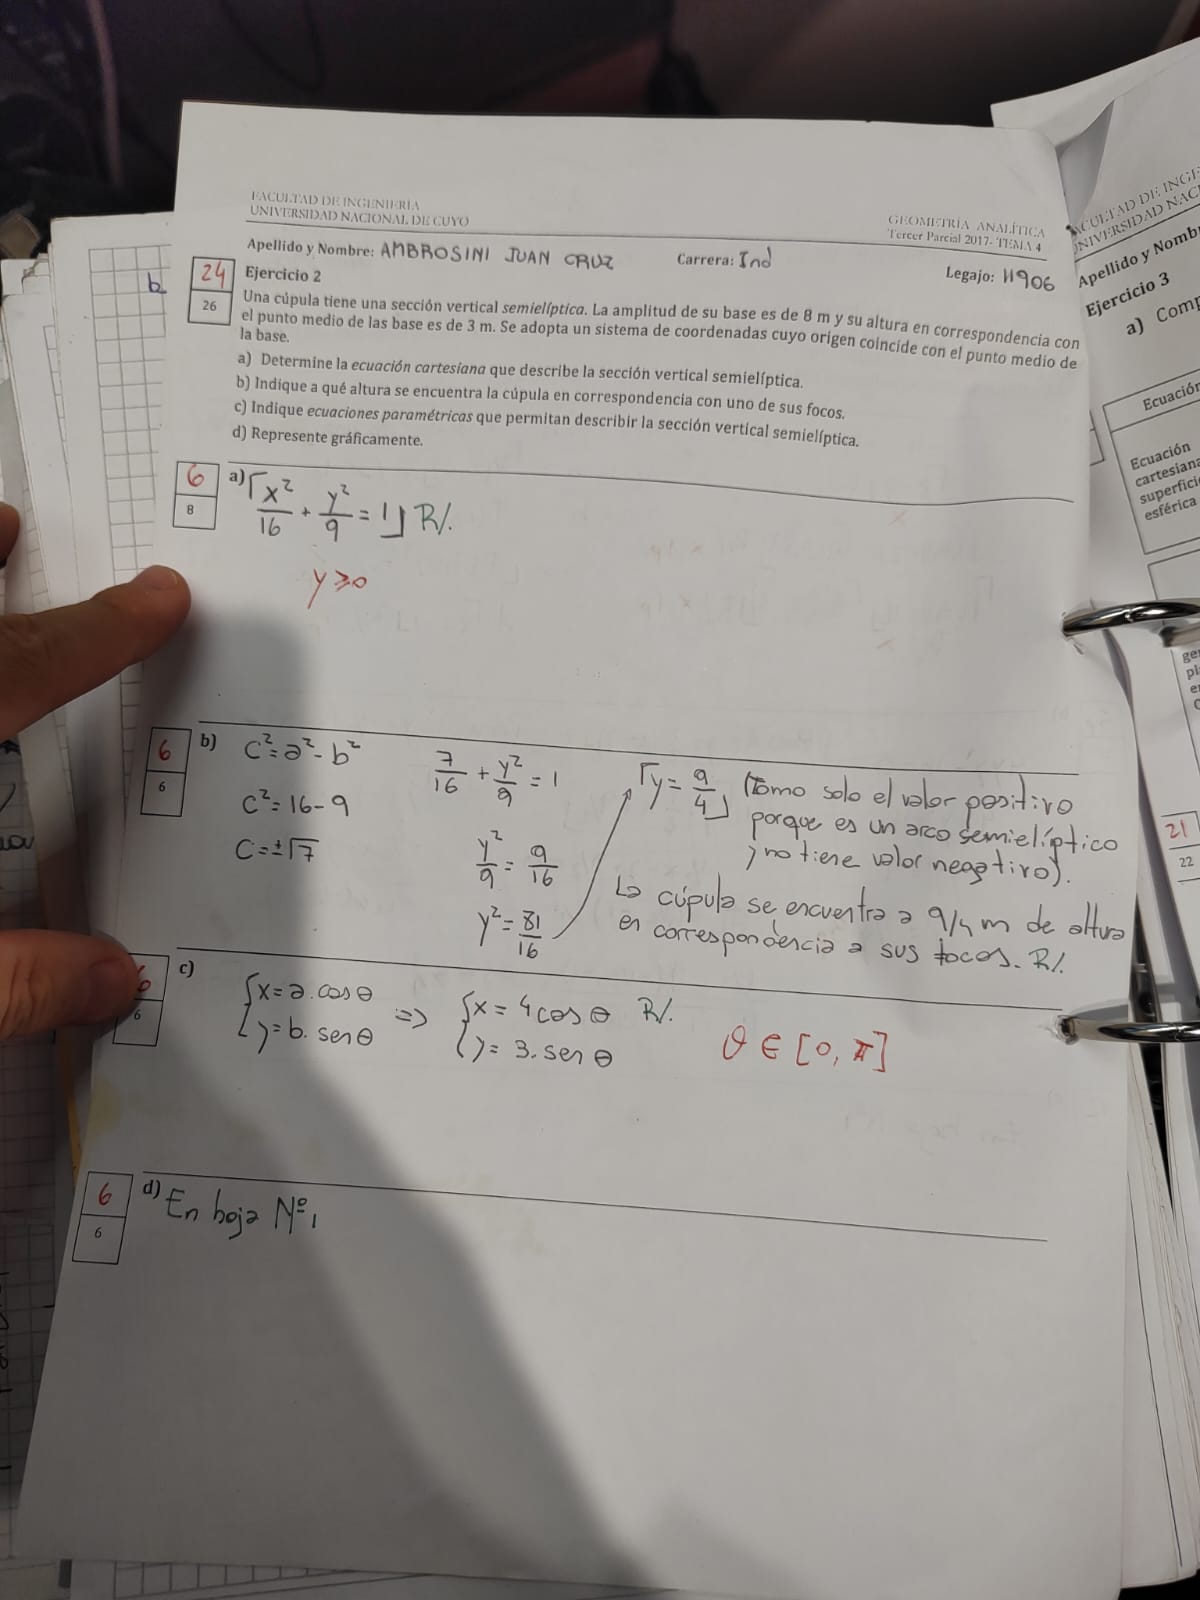 FACULTAD DE INGENIERÍA
UNIVERSIDAD NACIONAL DE CUYO
GEOMETRÍA ANALÍTICA
Tercer Parcial 2017- TEMA 4
Apellido y Nombre: AMBROSINI JUAN CRUZ Carrera: Ind Legajo: 11906
24
26
Ejercicio 2
Una cúpula tiene una sección vertical semielíptica. La amplitud de su base es de 8 m y su altura en correspondencia con
el punto medio de las base es de 3 m. Se adopta un sistema de coordenadas cuyo origen coincide con el punto medio de
la base.
a) Determine la ecuación cartesiana que describe la sección vertical semielíptica.
b) Indique a qué altura se encuentra la cúpula en correspondencia con uno de sus focos.
c) Indique ecuaciones paramétricas que permitan describir la sección vertical semielíptica.
d) Represente gráficamente.
6
8
a) x²/16 + y²/9 = 1 R/.
y ≥ 0
6
6
b) c² = a² - b²
c² = 16 - 9
c = ±√7
7/16 + y²/9 = 1
y²/9 = 9/16
y² = 81/16
y = 9/4 (Tomo solo el valor positivo
porque es un arco semielíptico
y no tiene valor negativo).
La cúpula se encuentra a 9/4 m de altura
en correspondencia a sus focos. R/.
6
6
c) { x = a. cos θ
y = b. sen θ
=> { x = 4 cos θ R/.
y = 3. sen θ
θ ∈ [0, π]
6
6
d) En hoja Nº1
FACULTAD DE INGE
UNIVERSIDAD NAC
Apellido y Nomb
Ejercicio 3
a) Comp
Ecuación
Ecuación
cartesiana
superficie
esférica
21
22
b